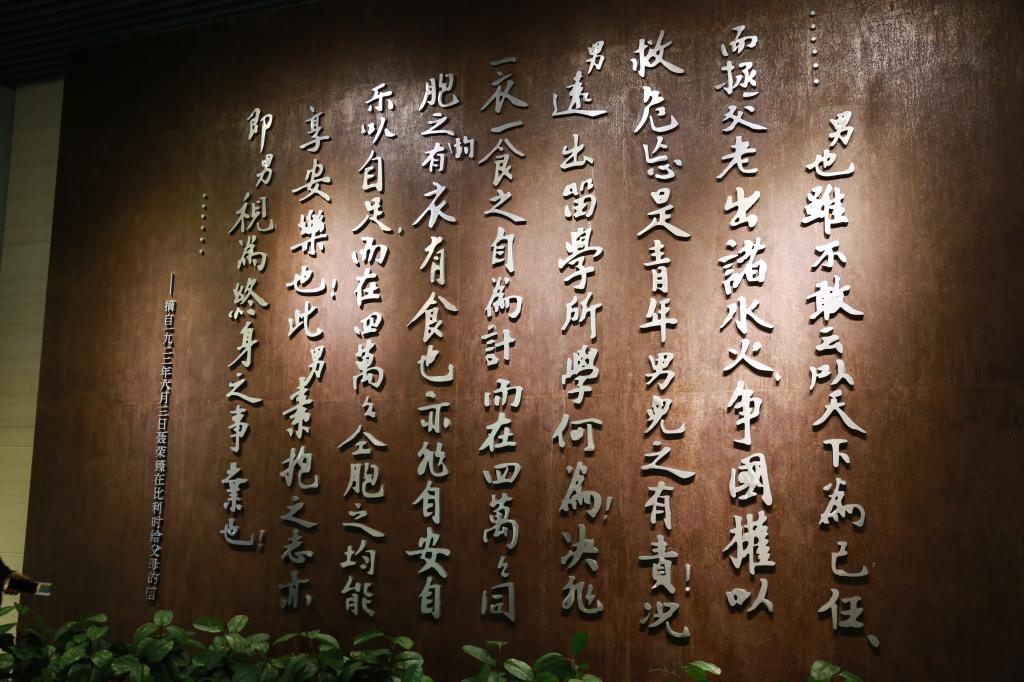 ......
男也雖不敢云以天下為己任、
而拯父老出諸水火,争國權以
救危忘是青年男兒之有責!况
男遠出留學所學何為!决非
一衣一食之自為計而在四萬々同
胞之均有衣有食也亦非自安自
乐以自足,而在四萬々仝胞之均能
享安樂也!此男素抱之志亦
即男視為終身之事業也!
......
——摘自一九二二年六月三日聂荣臻在比利时给父母的信